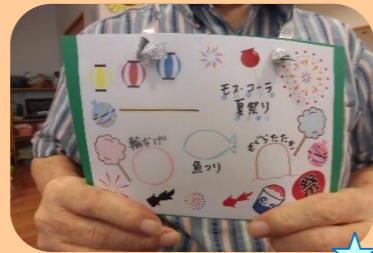 モズ・コーラ
夏祭り
輪なげ
魚つり
もぐらたたき
祭